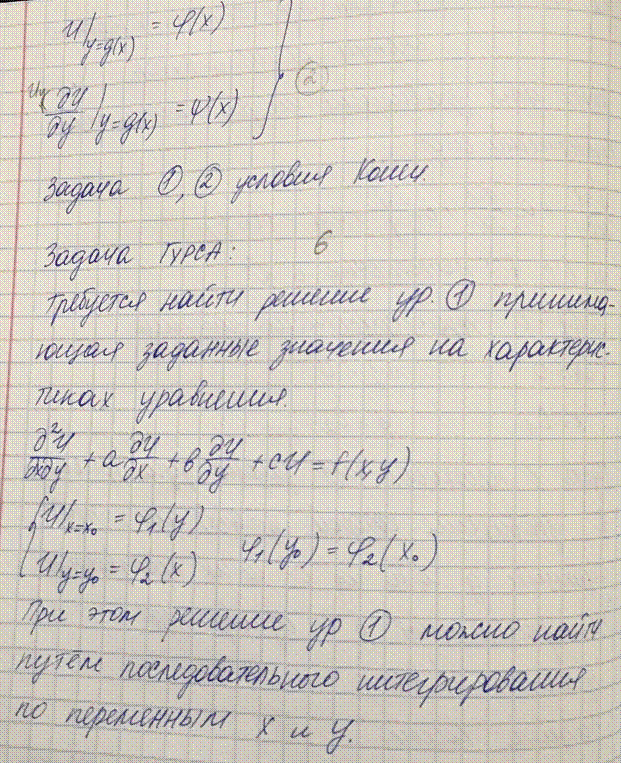 U|y=g(x) = φ(x)
∂U/∂y|y=g(x) = ψ(x) } ②
Задача ①, ② условия Коши.
Задача Гурса: 6
требуется найти решение ур. ① принима-
ющая заданные значения на характерис-
тиках уравнения.
∂²U/∂x∂y + a ∂U/∂x + b ∂U/∂y + cU = f(x,y)
{ U|x=x₀ = φ₁(y)
U|y=y₀ = φ₂(x) φ₁(y₀) = φ₂(x₀)
При этом решение ур ① можно найти
путём последовательного интегрирования
по переменным x и y.